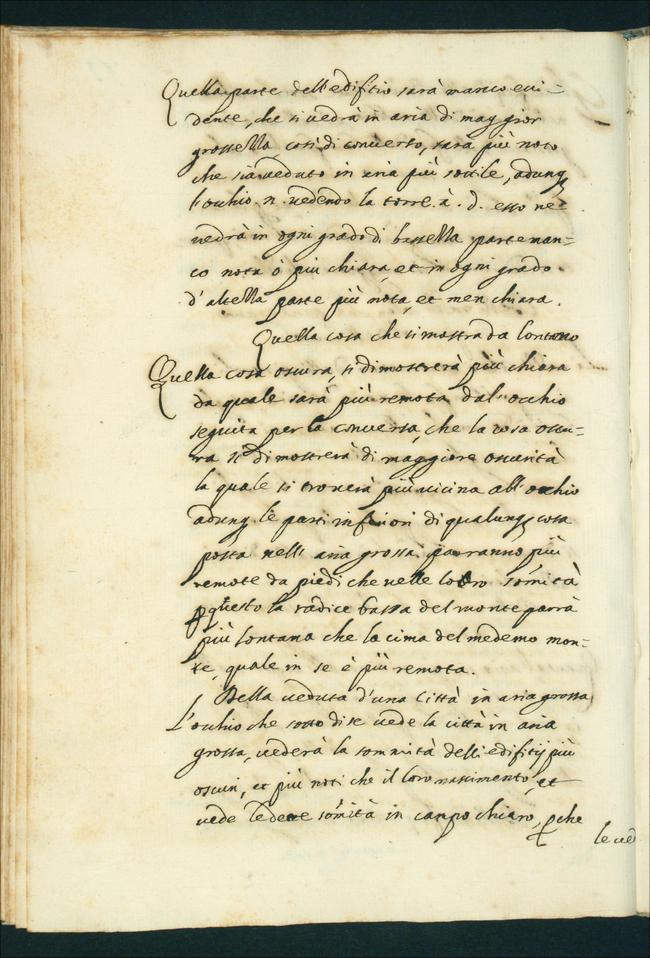 Quella parte dell'edifitio sarà manco evi=
dente, che si vedrà in aria di maggior
grossezza così di converso, sara più noto
che sia veduto in aria più sottile, adunq
l'occhio .n. vedendo la torre .à .d. esso ne
vedrà in ogni grado di bassezza parte man=
co nota ò più chiara, et in ogni grado
d'altezza parte più nota, et men chiara.
Quella cosa che si mostra da lontano
Quella cosa oscura, si dimostrerà più chiara
da quale sarà più remota dal'occhio
seguita per la conversa, che la cosa oscu=
ra si dimostrerà di maggiore oscurità
la quale si troverà più vicina all'occhio
adunq le parti inferiori di qualunq cosa
posta nell'aria grossa parranno più
remote da piedi che nelle loro somità
p questo la radice bassa del monte parrà
più lontana che la cima del medemo mon=
te, quale in se è più remota.
Della veduta d'una Città in aria grossa
L'occhio che sotto di se vede la città in aria
grossa, vederà la sommità delli edifitij più
oscuri, et più noti che il loro nascimento, et
vede le dette somità in campo chiaro, pche
le ved